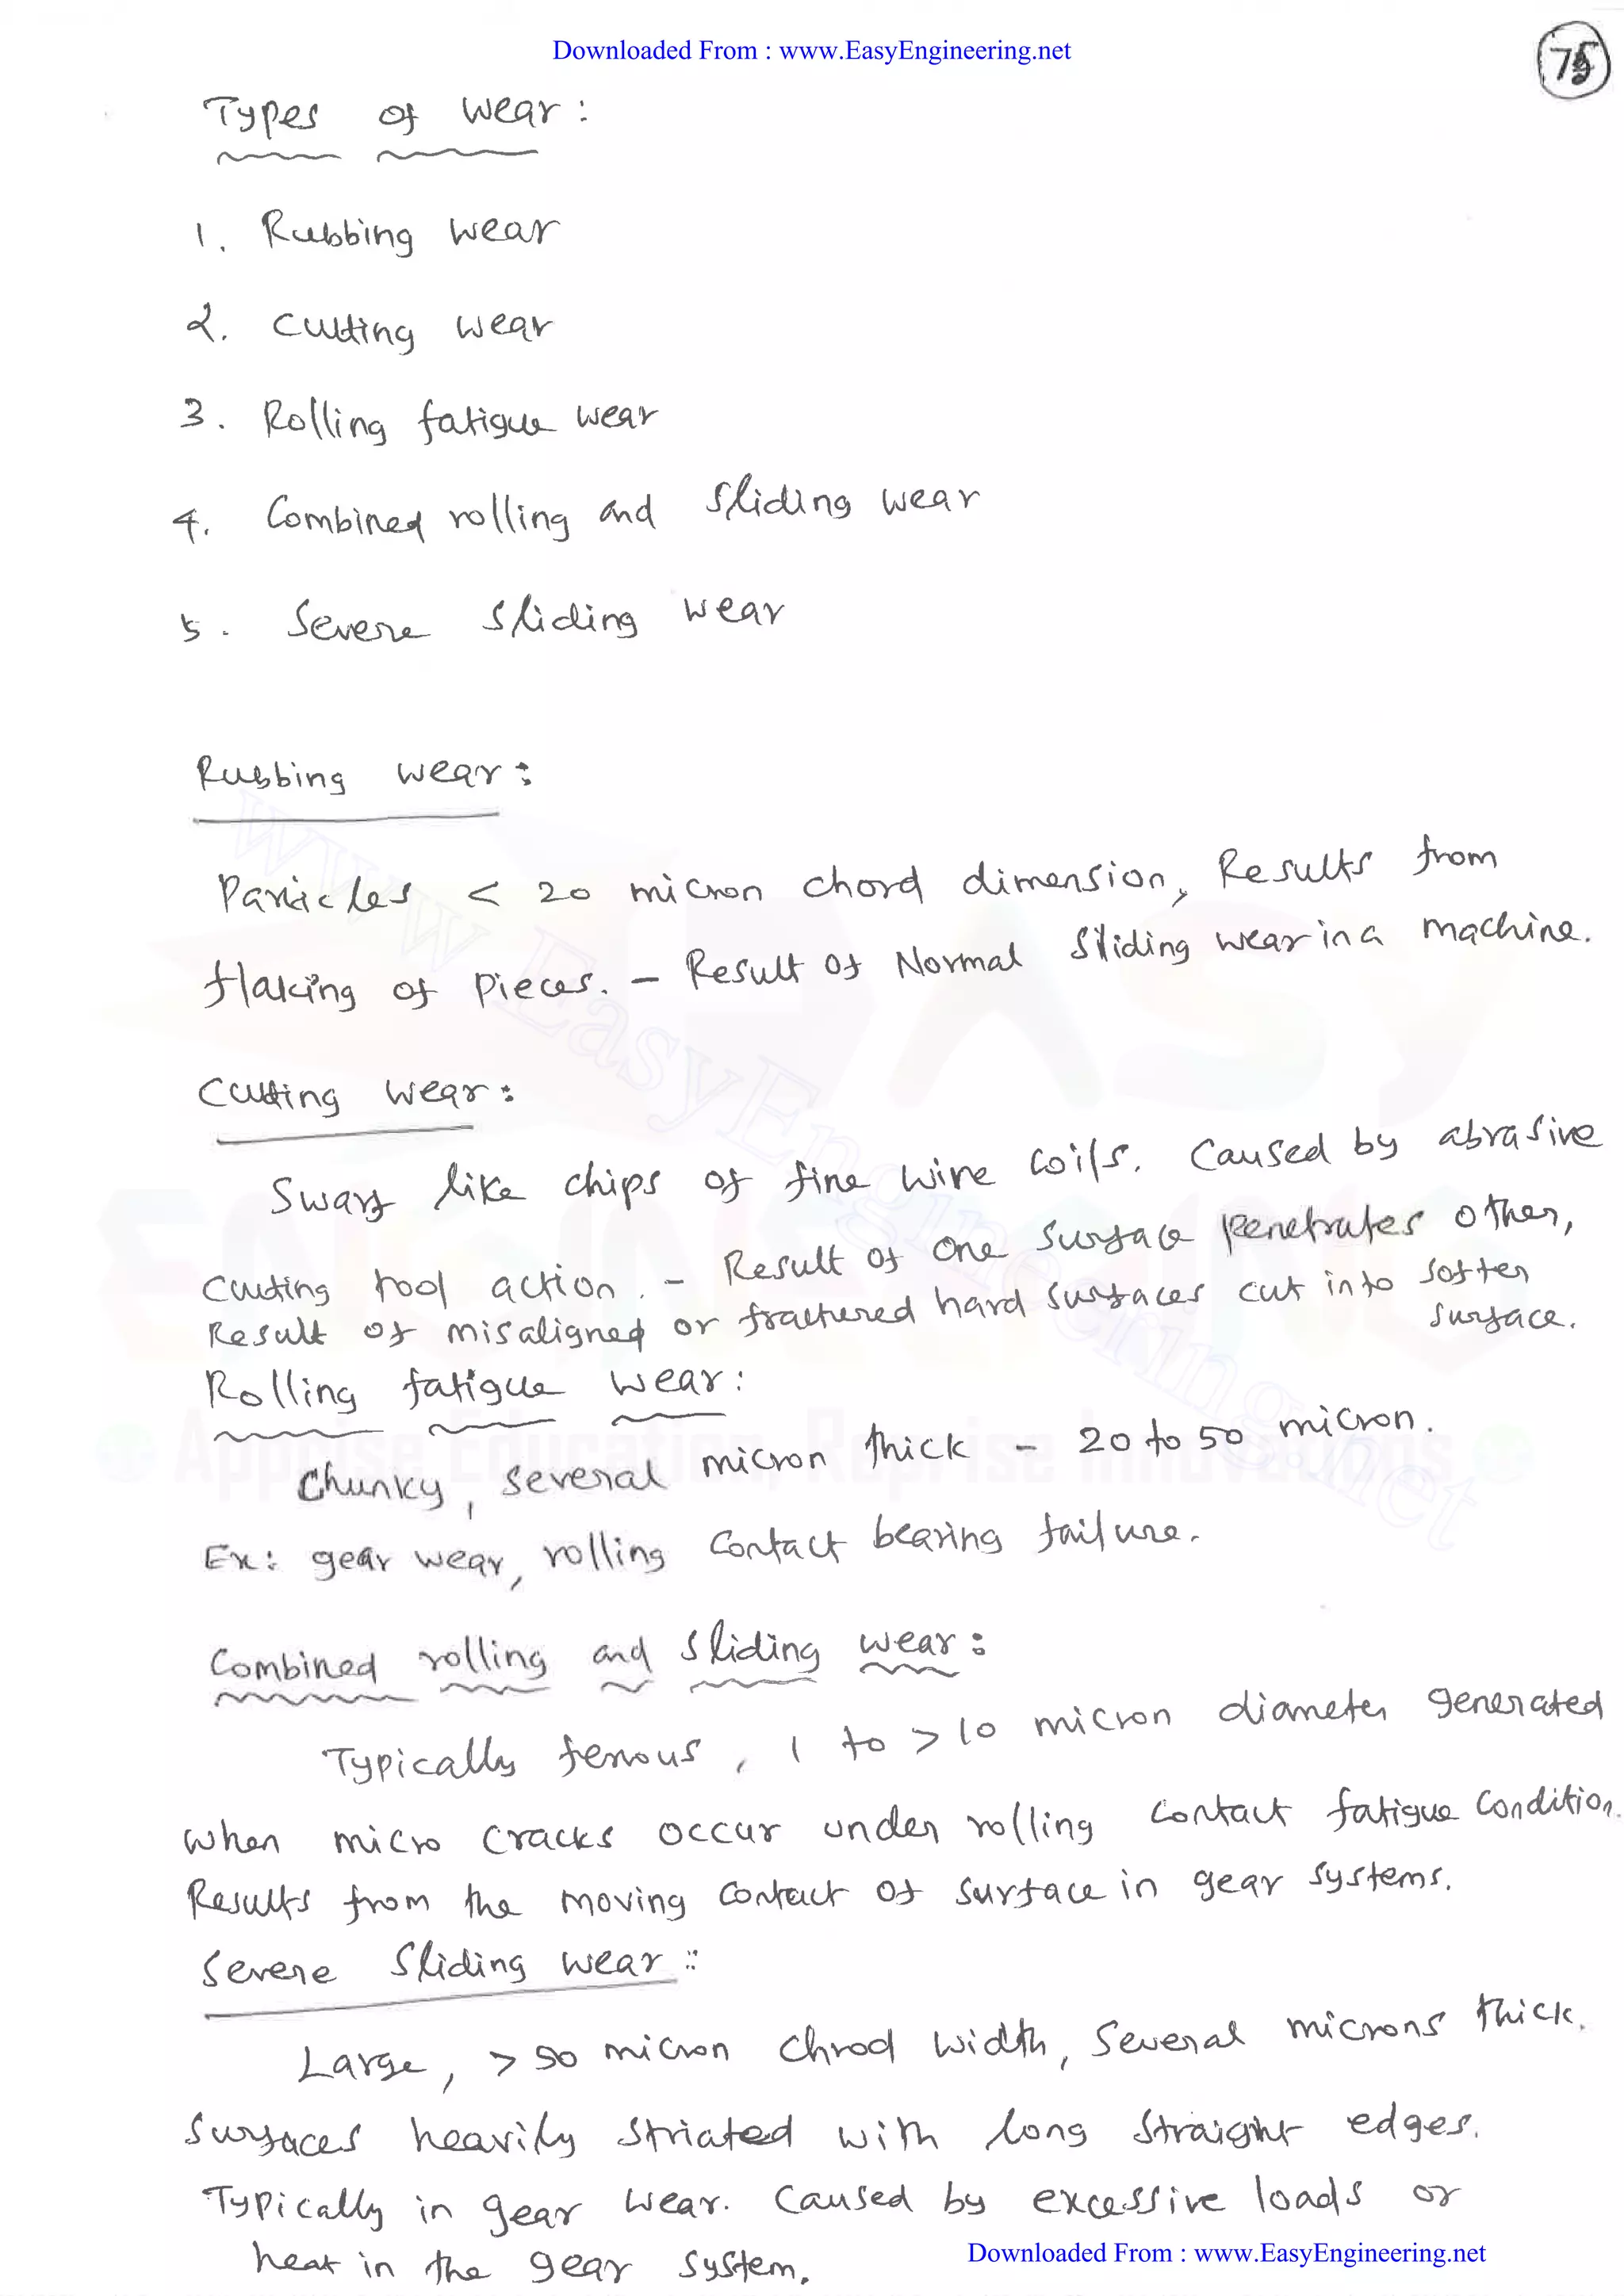 Downloaded From : www.EasyEngineering.net
Types of wear :
1. Rubbing wear
2. Cutting wear
3. Rolling fatigue wear
4. Combined rolling and sliding wear
5. Severe sliding wear
Rubbing wear :
Particles < 20 micron chord dimension, Results from
flaking of pieces. - Result of Normal sliding wear in a machine.
Cutting wear :
Swarf like chips of fine wire coils. Caused by abrasive
cutting tool action. - Result of one surface penetrates other,
Result of misaligned or fractured hard surfaces cut into softer
surface.
Rolling fatigue wear :
Chunky, several micron thick - 20 to 50 micron.
Ex: gear wear, rolling contact bearing failure.
Combined rolling and sliding wear :
Typically ferrous, 1 to > 10 micron diameter generated
when micro cracks occur under rolling contact fatigue condition.
Results from the moving contact of surface in gear systems.
Severe sliding wear ::
Large, > 50 micron chrod width, several microns thick.
Surfaces heavily striated with long straight edges.
Typically in gear wear. Caused by excessive loads or
heat in the gear system.
Downloaded From : www.EasyEngineering.net
www.EasyEngineering.net
EASY
ENGINEERING
Apprise Education, Reprise Innovations